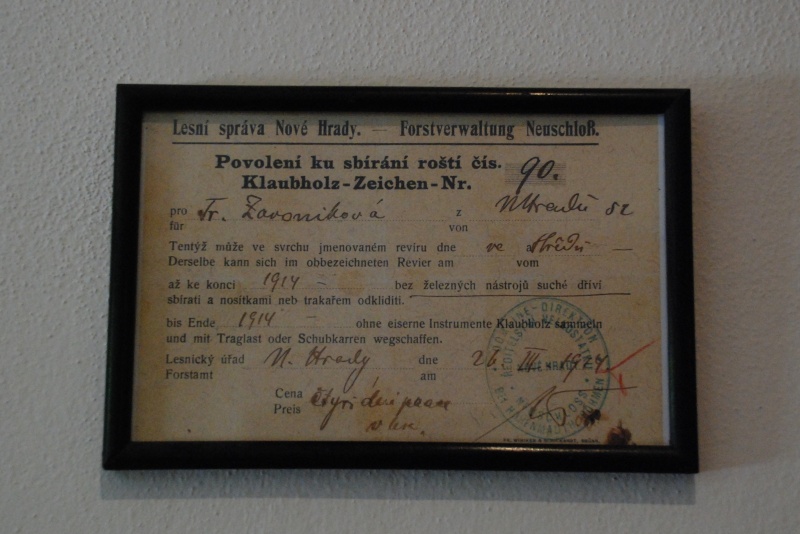 Lesní správa Nové Hrady. — Forstverwaltung Neuschloß.
Povolení ku sbírání roští čís. 90.
Klaubholz-Zeichen-Nr.
pro Fr. Zavoníková z N Hradů 82
für von
Tentýž může ve svrchu jmenovaném revíru dne ve Středu —
Derselbe kann sich im obbezeichneten Revier am vom
až ke konci 1914 — bez železných nástrojů suché dříví
sbírati a nosítkami neb trakařem odkliditi.
bis Ende 1914 — ohne eiserne Instrumente Klaubholz sammeln
und mit Traglast oder Schubkarren wegschaffen.
Lesnický úřad N. Hrady dne 26. III. 1914
Forstamt am
Cena čtyři dni práce
Preis
v hr.